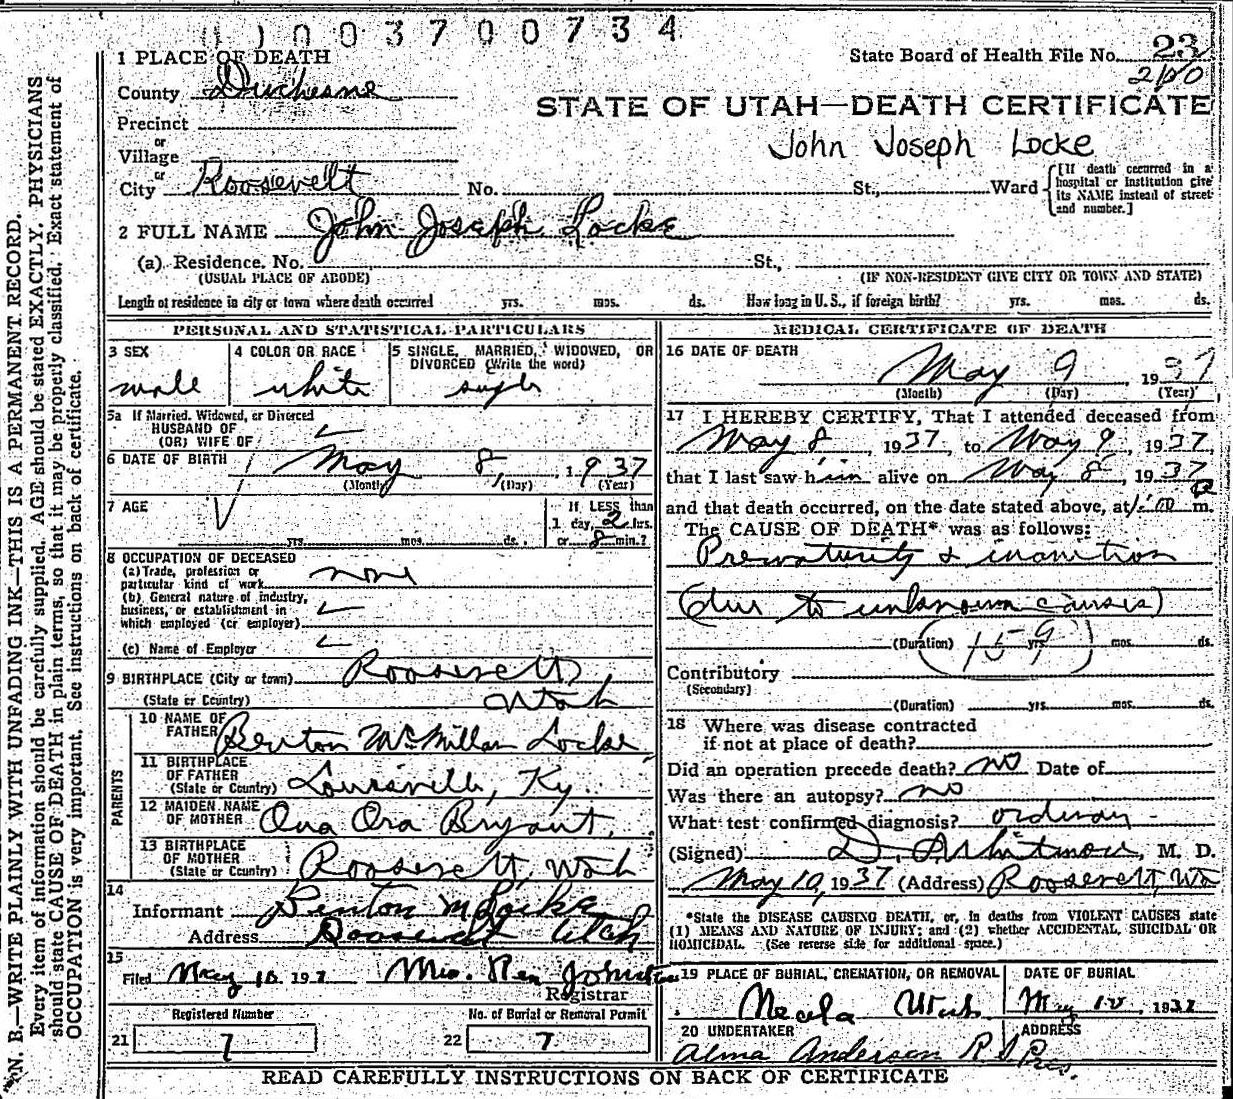 003700734
State Board of Health File No. 23
210
1 PLACE OF DEATH
County Duchesne
STATE OF UTAH—DEATH CERTIFICATE
Precinct
or
Village
John Joseph Locke
or
City Roosevelt No. St., Ward
[If death occurred in a hospital or institution give its NAME instead of street and number.]
2 FULL NAME John Joseph Locke
(a) Residence. No. St.,
(USUAL PLACE OF ABODE) (IF NON-RESIDENT GIVE CITY OR TOWN AND STATE)
Length of residence in city or town where death occurred yrs. mos. ds. How long in U. S., if foreign birth? yrs. mos. ds.
PERSONAL AND STATISTICAL PARTICULARS
3 SEX
male
4 COLOR OR RACE
white
5 SINGLE, MARRIED, WIDOWED, OR
DIVORCED (Write the word)
single
5a If Married, Widowed, or Divorced
HUSBAND OF
(OR) WIFE OF
6 DATE OF BIRTH May 8, 1937
(Month) (Day) (Year)
7 AGE
yrs. mos. ds.
If LESS than
1 day, 2 hrs.
or 8 min.?
8 OCCUPATION OF DECEASED
(a) Trade, profession or
particular kind of work none
(b) General nature of industry,
business, or establishment in
which employed (or employer)
(c) Name of Employer
9 BIRTHPLACE (City or town) Roosevelt,
(State or Country) Utah
PARENTS
10 NAME OF
FATHER Benton McMillan Locke
11 BIRTHPLACE
OF FATHER
(State or Country) Louisville, Ky.
12 MAIDEN NAME
OF MOTHER Ona Ora Bryant.
13 BIRTHPLACE
OF MOTHER
(State or Country) Roosevelt, Utah
14
Informant Benton M Locke
Address Roosevelt Utah
15
Filed May 10, 1937 Mrs. Johnston
Registrar
Registered Number
21 7
No. of Burial or Removal Permit
22 7
MEDICAL CERTIFICATE OF DEATH
16 DATE OF DEATH
May 9, 1937
(Month) (Day) (Year)
17 I HEREBY CERTIFY, That I attended deceased from
May 8, 1937, to May 9, 1937,
that I last saw him alive on May 8, 1937
and that death occurred, on the date stated above, at 1:00 a m.
The CAUSE OF DEATH* was as follows:
Prematurity & inanition
(due to unknown causes)
(Duration) yrs. mos. ds.
159
Contributory
(Secondary)
(Duration) yrs. mos. ds.
18 Where was disease contracted
if not at place of death?
Did an operation precede death? no Date of
Was there an autopsy? no
What test confirmed diagnosis? ordinary
(Signed) Whitmore, M. D.
May 10, 1937 (Address) Roosevelt, Uta
*State the DISEASE CAUSING DEATH, or, in deaths from VIOLENT CAUSES state
(1) MEANS AND NATURE OF INJURY; and (2) whether ACCIDENTAL, SUICIDAL OR
HOMICIDAL. (See reverse side for additional space.)
19 PLACE OF BURIAL, CREMATION, OR REMOVAL
Neola Utah
DATE OF BURIAL
May 10, 1937
20 UNDERTAKER
Alma Anderson R S Pres.
ADDRESS
READ CAREFULLY INSTRUCTIONS ON BACK OF CERTIFICATE
N. B.—WRITE PLAINLY WITH UNFADING INK—THIS IS A PERMANENT RECORD.
Every item of information should be carefully supplied. AGE should be stated EXACTLY. PHYSICIANS
should state CAUSE OF DEATH in plain terms, so that it may be properly classified. Exact statement of
OCCUPATION is very important. See instructions on back of certificate.